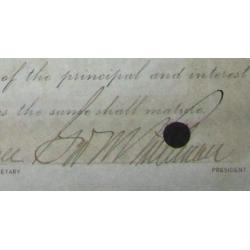 of the principal and interest
the same shall mature.
Geo M Pullman
ETARY PRESIDENT